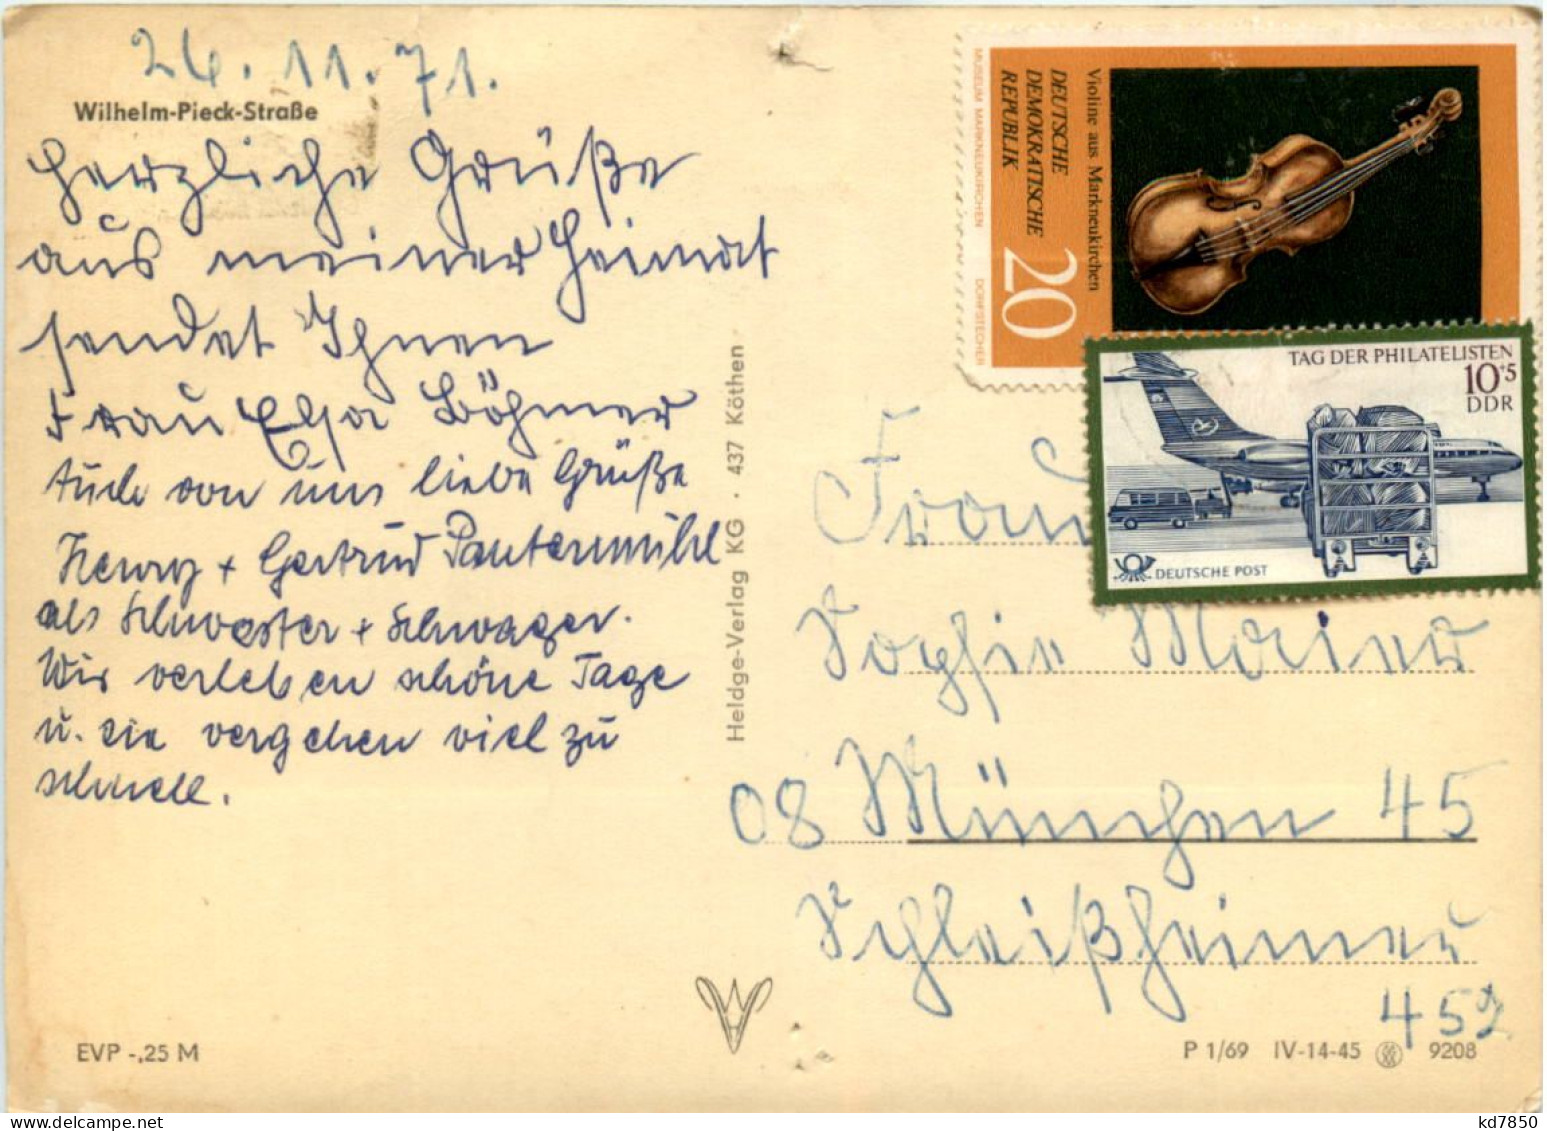 26.11.71.
Wilhelm-Pieck-Straße
Herzliche Grüße
aus meiner Heimat
sendet Ihnen
Frau Elsa Böhmer
Auch von uns liebe Grüße
+ Gertrud
als Schwester + Schwager.
Wir verleben schöne Tage
u. sie vergehen viel zu
schnell.
EVP -,25 M
Heldge-Verlag KG · 437 Köthen
MUSEUM MARKNEUKIRCHEN DÖRFSTECHER
DEUTSCHE
DEMOKRATISCHE
REPUBLIK
20
Violine aus Markneukirchen
TAG DER PHILATELISTEN
10+5
DDR
DEUTSCHE POST
Frau
Sophie Maier
08 München 45
Schleißheimer
452
P 1/69 IV-14-45 9208
kd7850